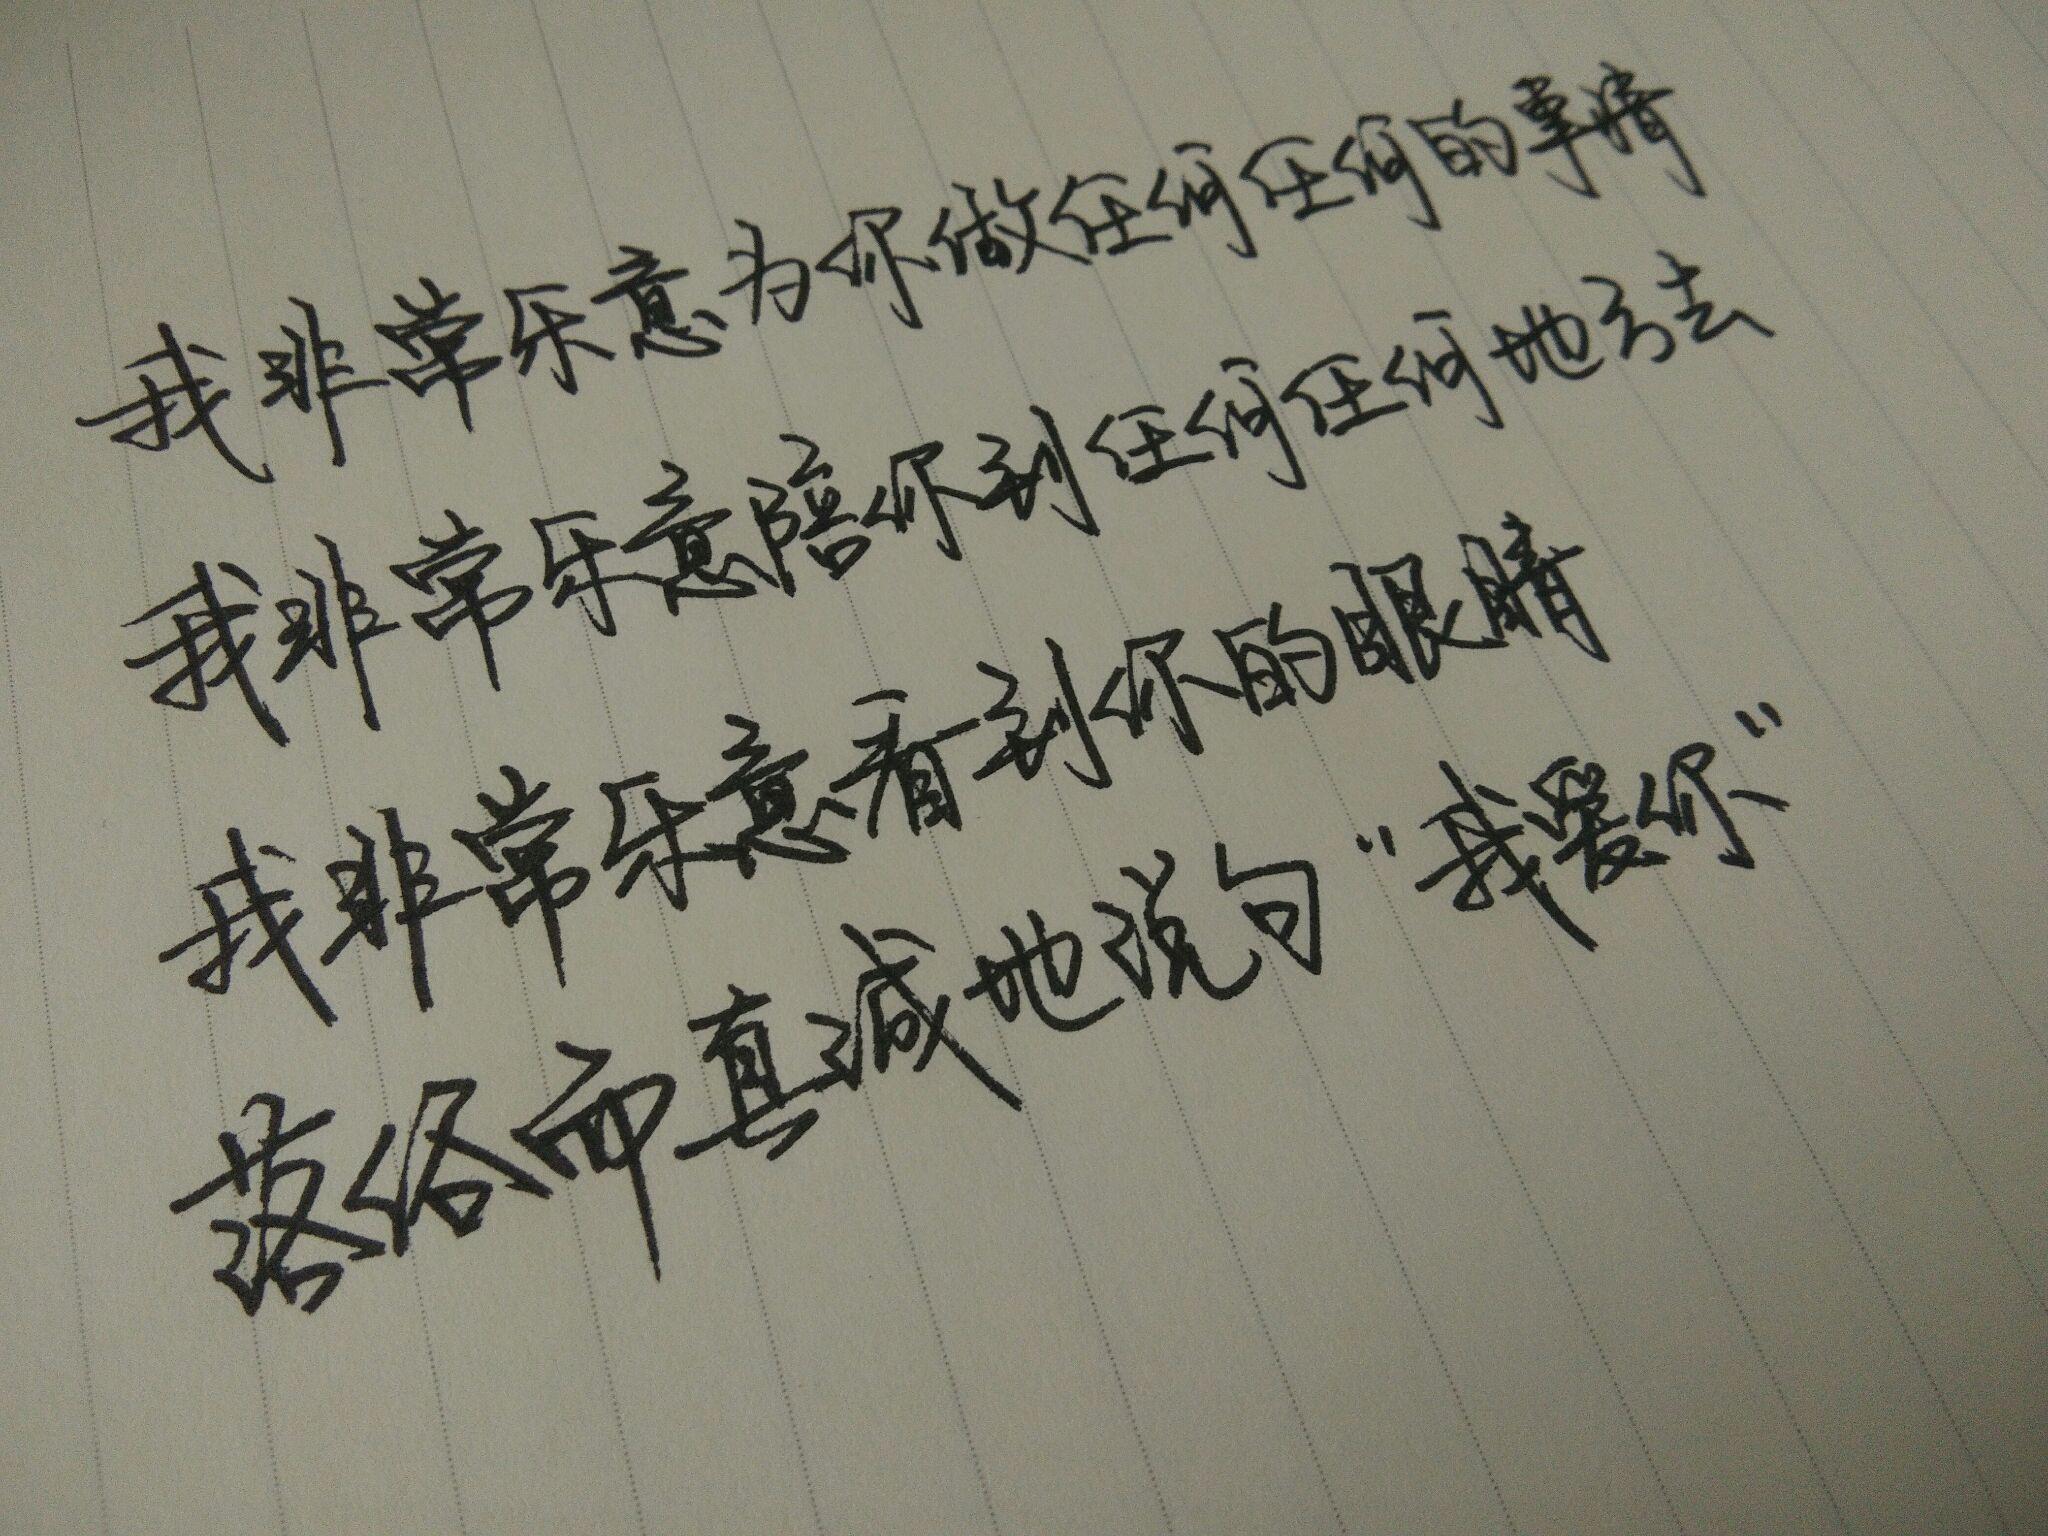 我非常乐意为你做任何任何的事情
我非常乐意陪你到任何任何地方去
我非常乐意看到你的眼睛
落俗而真诚地说句“我爱你”